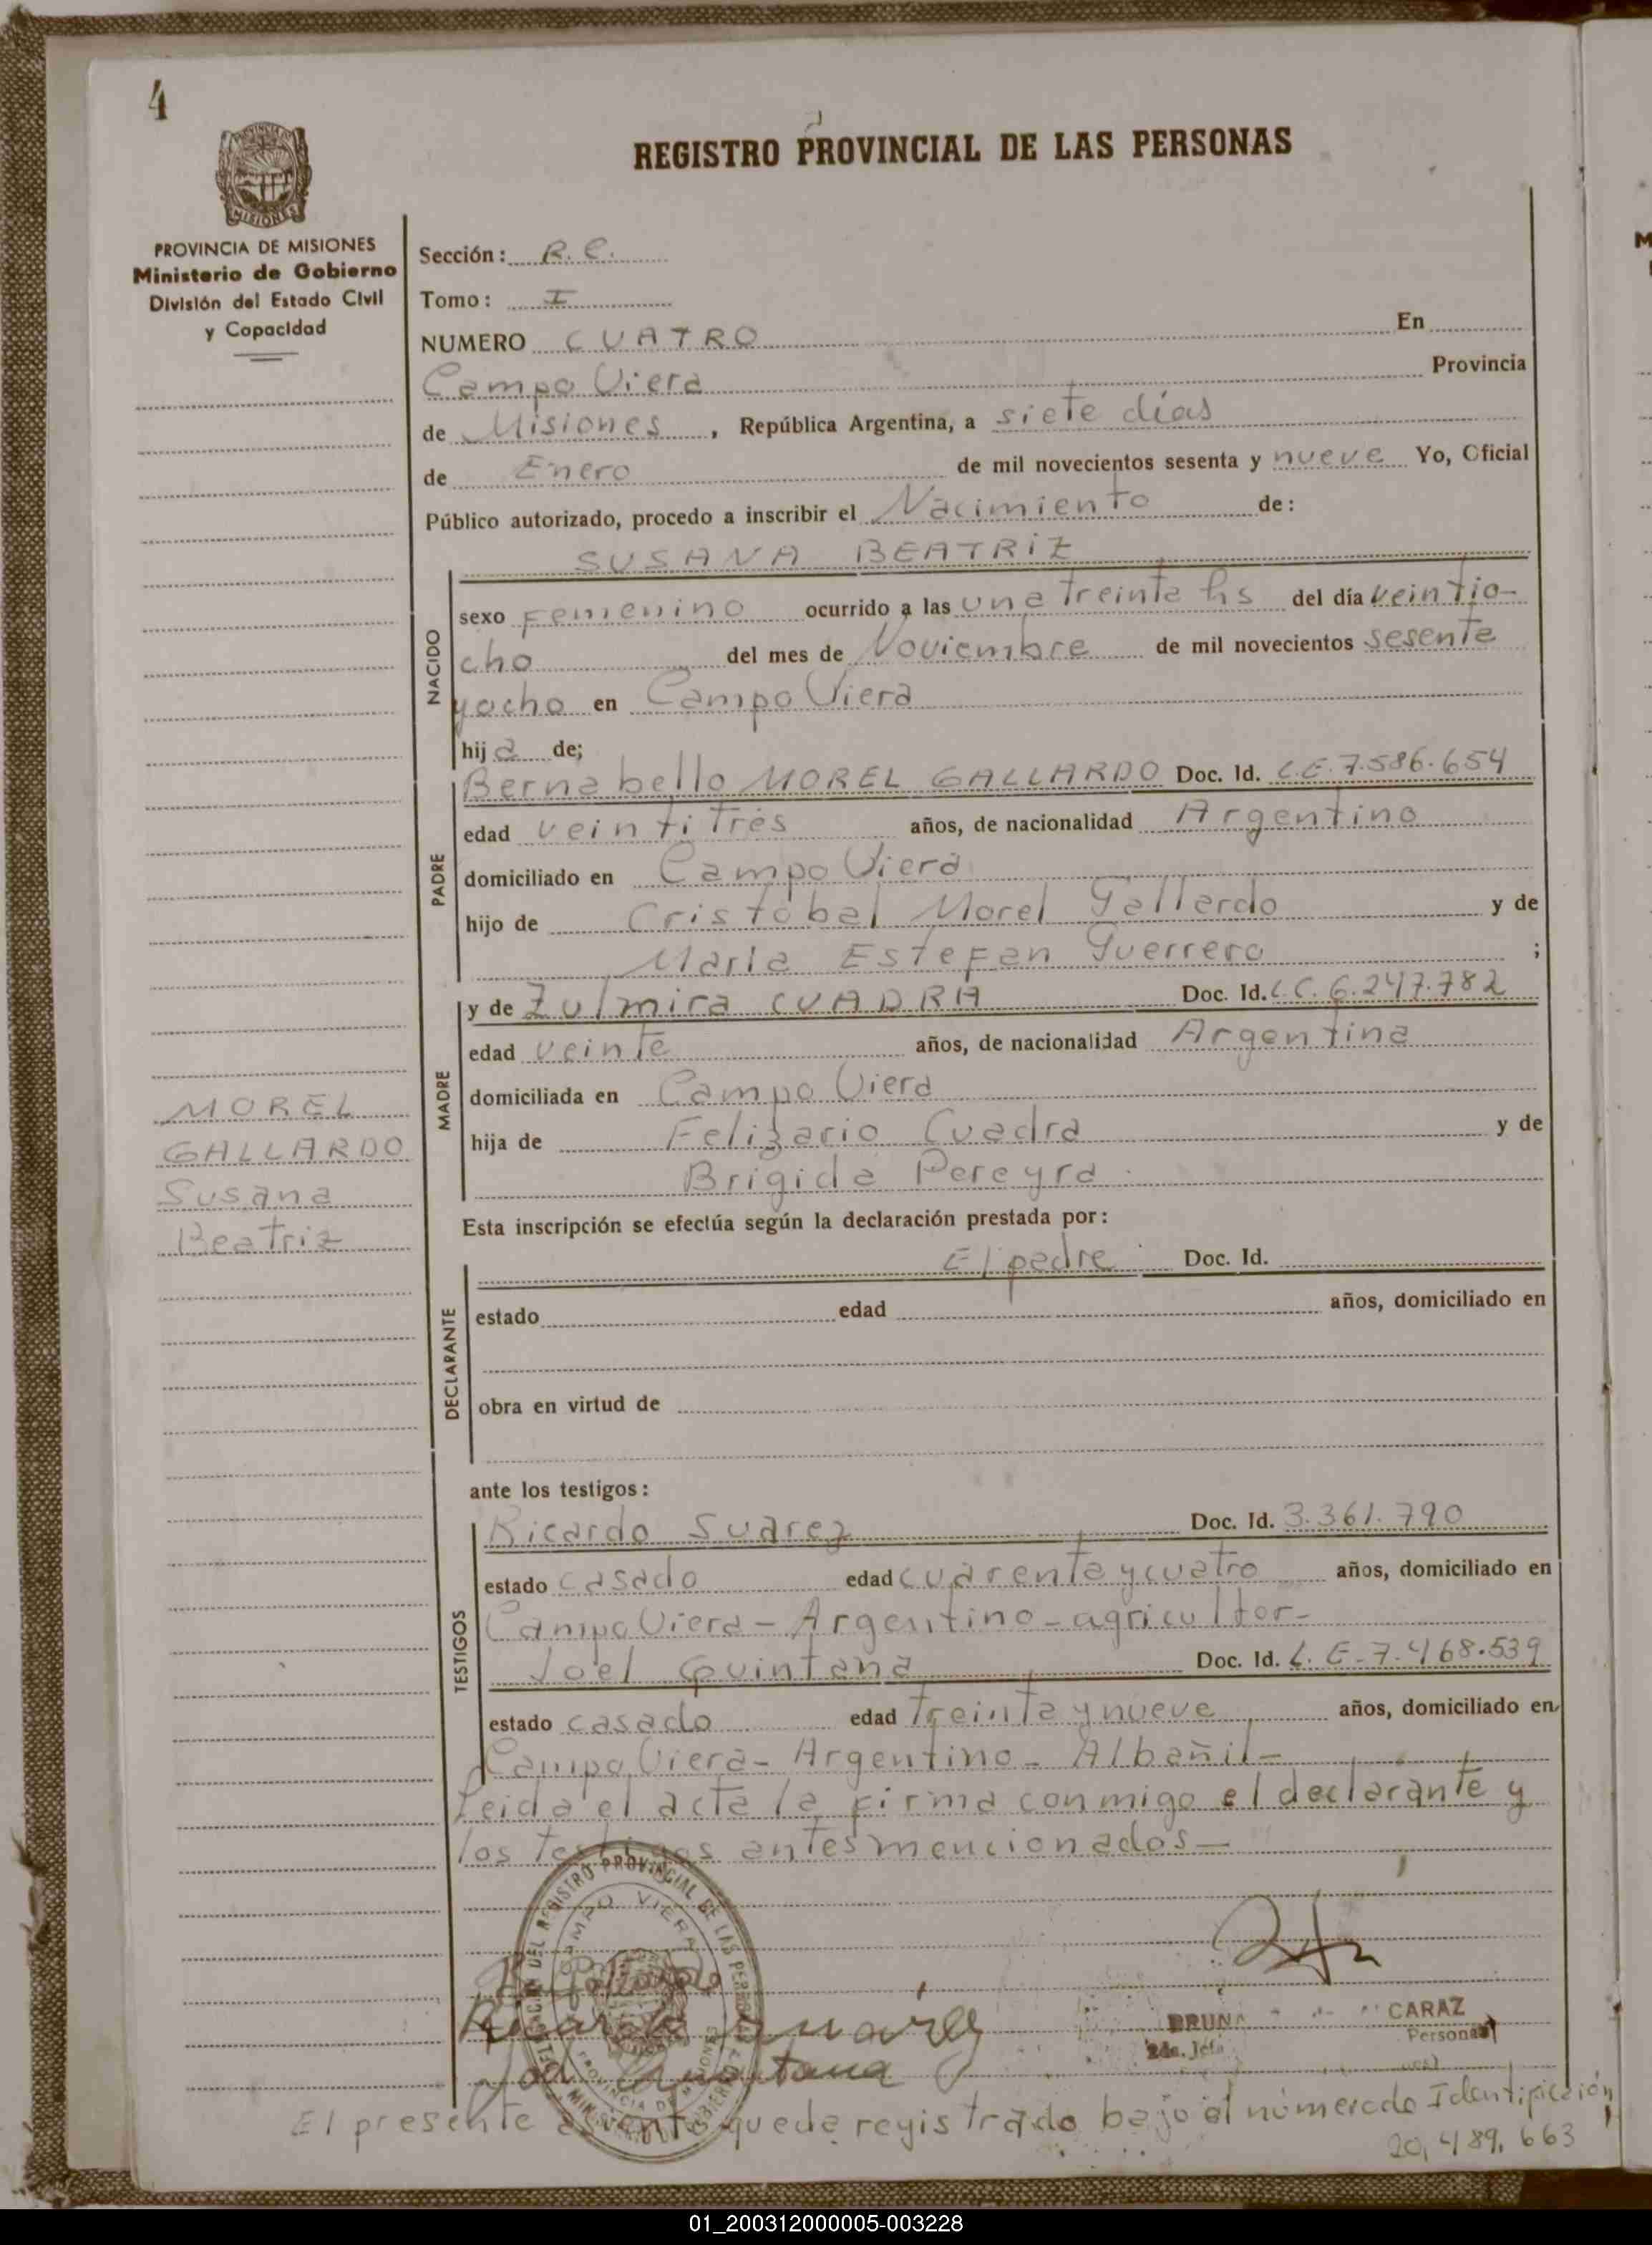 4
REGISTRO PROVINCIAL DE LAS PERSONAS
MISIONES
PROVINCIA DE MISIONES
Ministerio de Gobierno
División del Estado Civil
y Capacidad
Sección: R. C.
Tomo: I
NUMERO CUATRO En
Campo Viera Provincia
de Misiones, República Argentina, a siete días
de Enero de mil novecientos sesenta y nueve Yo, Oficial
Público autorizado, procedo a inscribir el Nacimiento de:
SUSANA BEATRIZ
NACIDO
sexo Femenino ocurrido a las una treinta hs del día veintio-
cho del mes de Noviembre de mil novecientos sesenta
yocho en Campo Viera
hija de;
PADRE
Bernabello MOREL GALLARDO Doc. Id. L.E. 7.586.654
edad veintitres años, de nacionalidad Argentino
domiciliado en Campo Viera
hijo de Cristóbal Morel Gallardo y de
Maria Estefan Guerrero ;
MADRE
y de Zulmira CUADRA Doc. Id. L.C. 6.247.782
edad veinte años, de nacionalidad Argentina
domiciliada en Campo Viera
hija de Felizario Cuadra y de
Brigida Pereyra
MOREL
GALLARDO
Susana
Beatriz
Esta inscripción se efectúa según la declaración prestada por:
DECLARANTE
El padre Doc. Id.
estado edad años, domiciliado en
obra en virtud de
ante los testigos:
TESTIGOS
Ricardo Suarez Doc. Id. 3.361.790
estado casado edad cuarenta y cuatro años, domiciliado en
Campo Viera - Argentino - agricultor -
Joel Quintana Doc. Id. L. E - 7.468.539
estado casado edad treinta y nueve años, domiciliado en
Campo Viera - Argentino - Albañil -
Leida el acta la firma conmigo el declarante y
los testigos antes mencionados -
REGISTRO PROVINCIAL DE LAS PERSONAS
CAMPO VIERA
PROVINCIA DE MISIONES
Gallardo
Ricardo Suárez
Joel Quintana
CARAZ
Personas
El presente asiento queda registrado bajo el número de Identificación
20,489,663
01_200312000005-003228